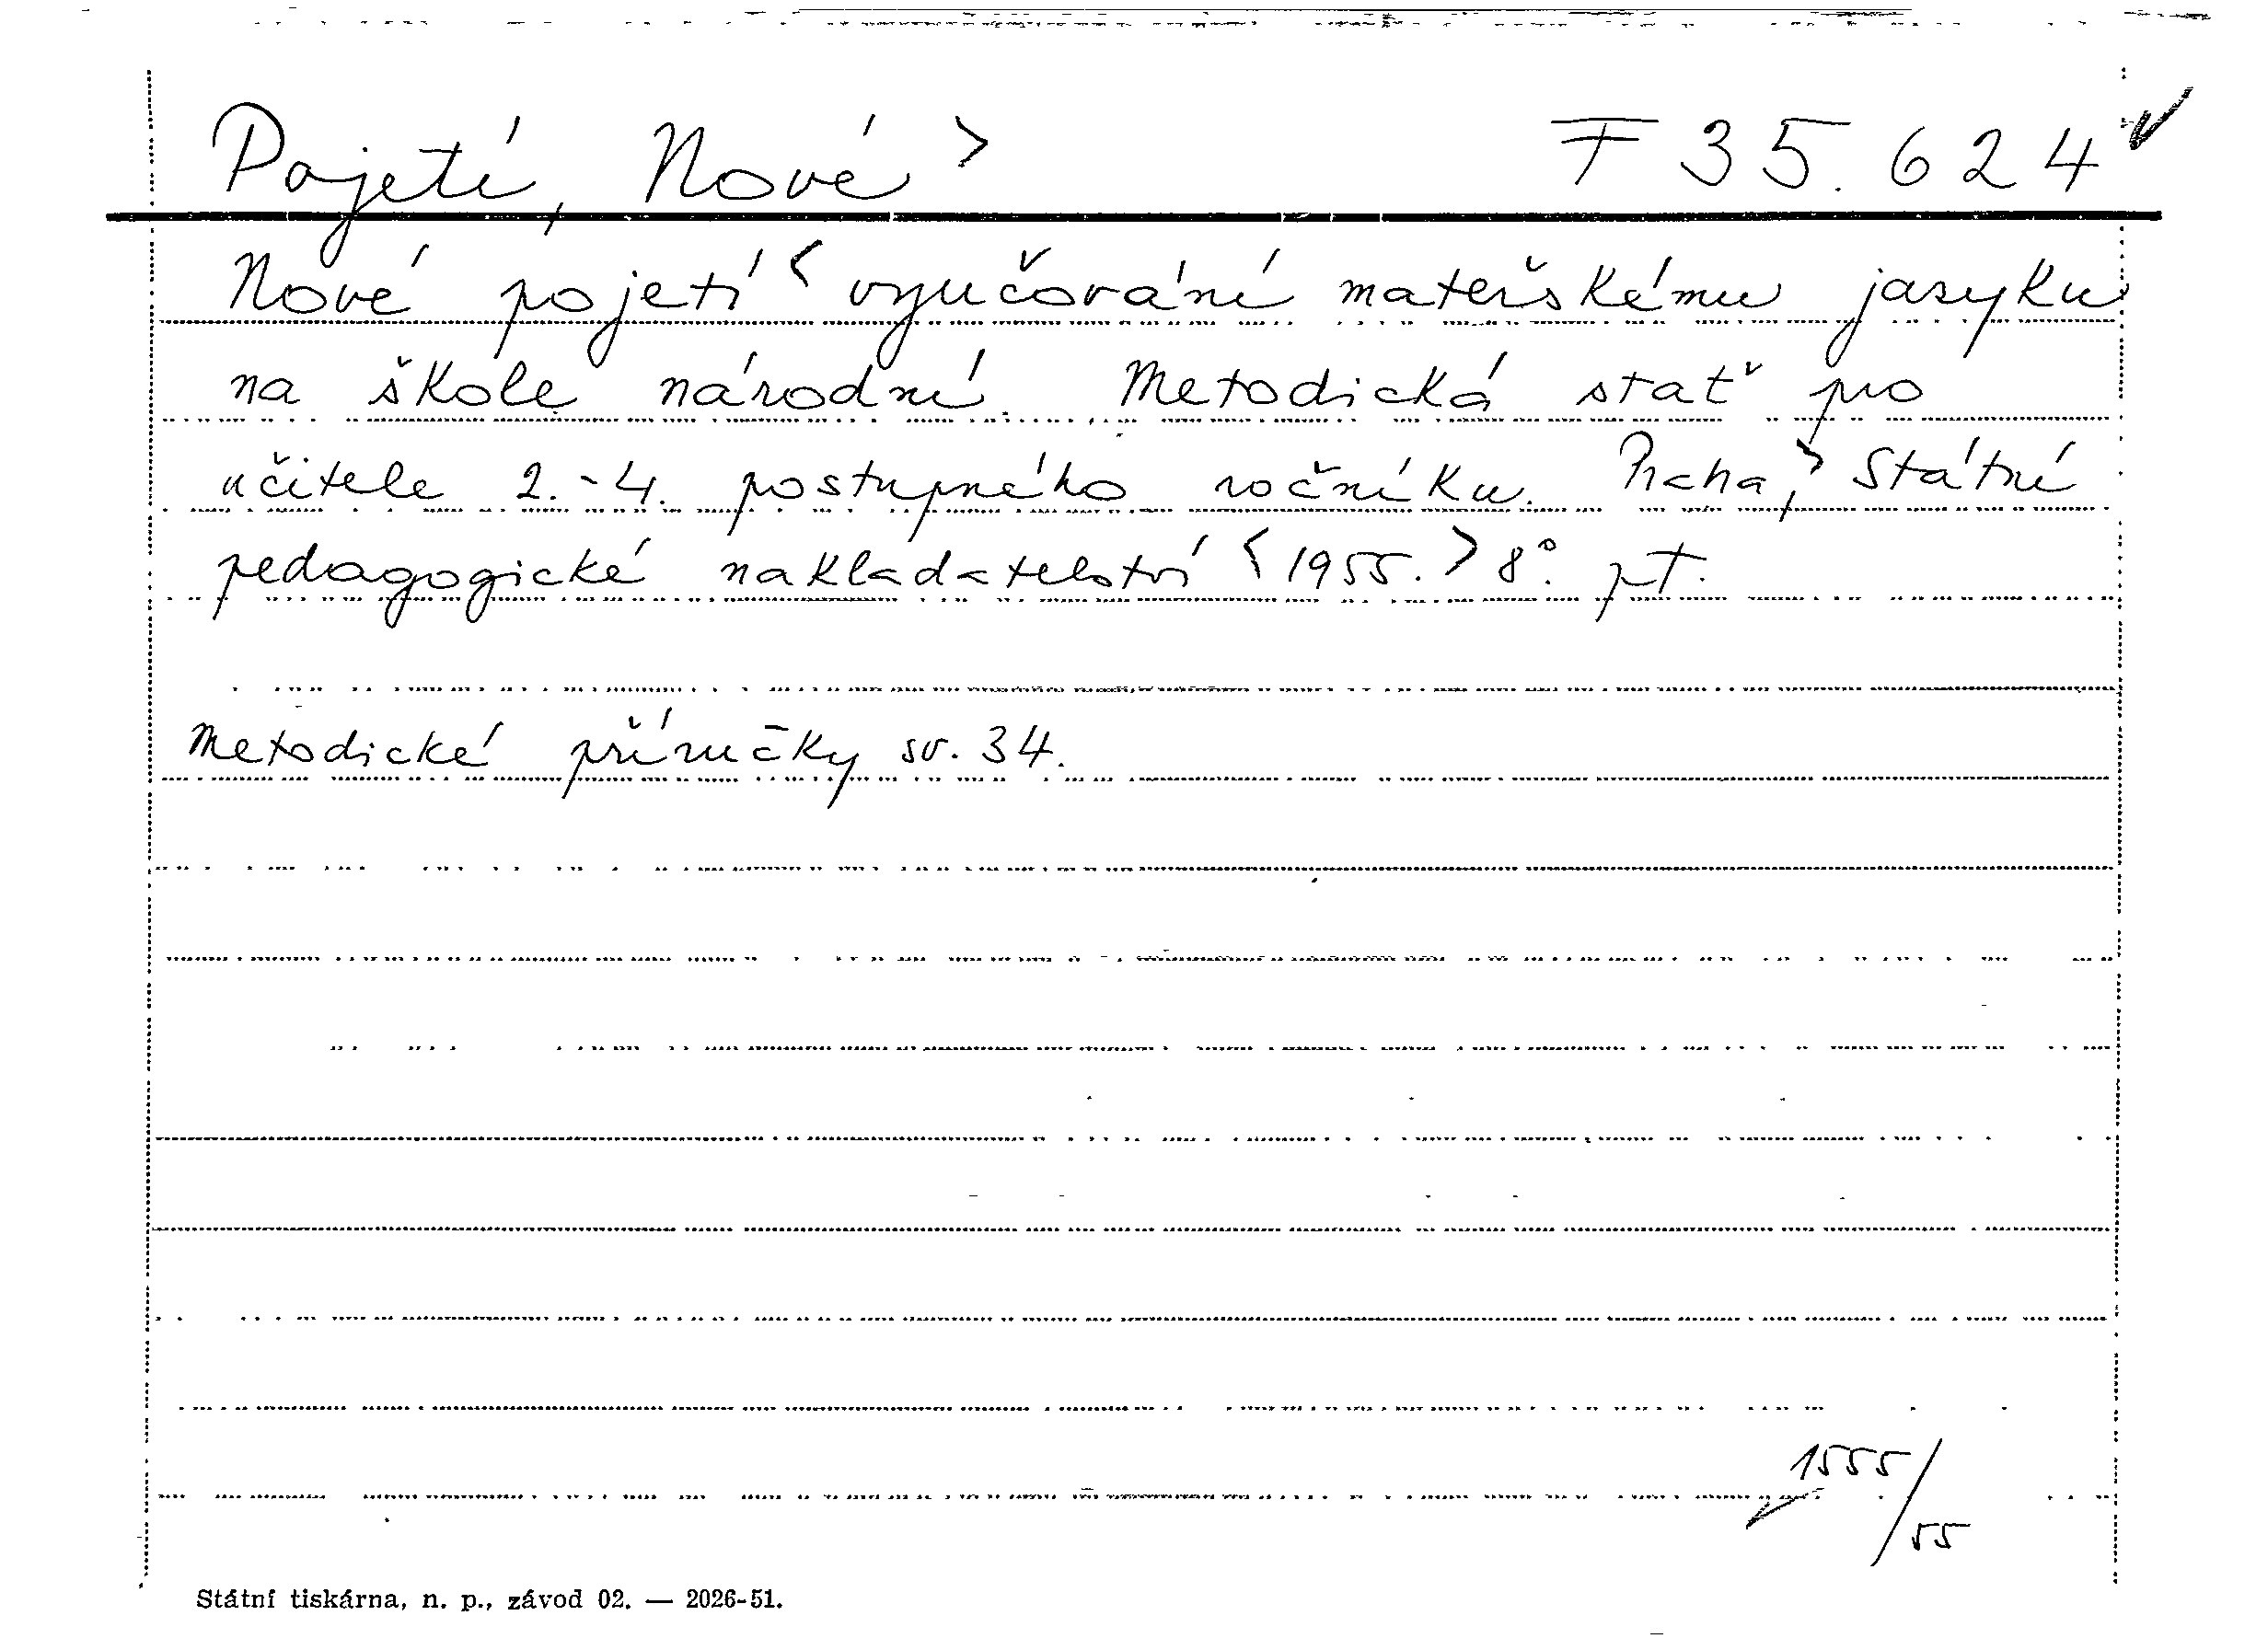 Pojetí, Nové > F 35.624
Nové pojetí < vyučování mateřskému jazyku
na škole národní. Metodická stať pro
učitele 2.-4. postupného ročníku. Praha, > Státní
pedagogické nakladatelství < 1955. > 8°. pt.
Metodické příručky sv. 34.
1555/55
Státní tiskárna, n. p., závod 02. — 2026-51.